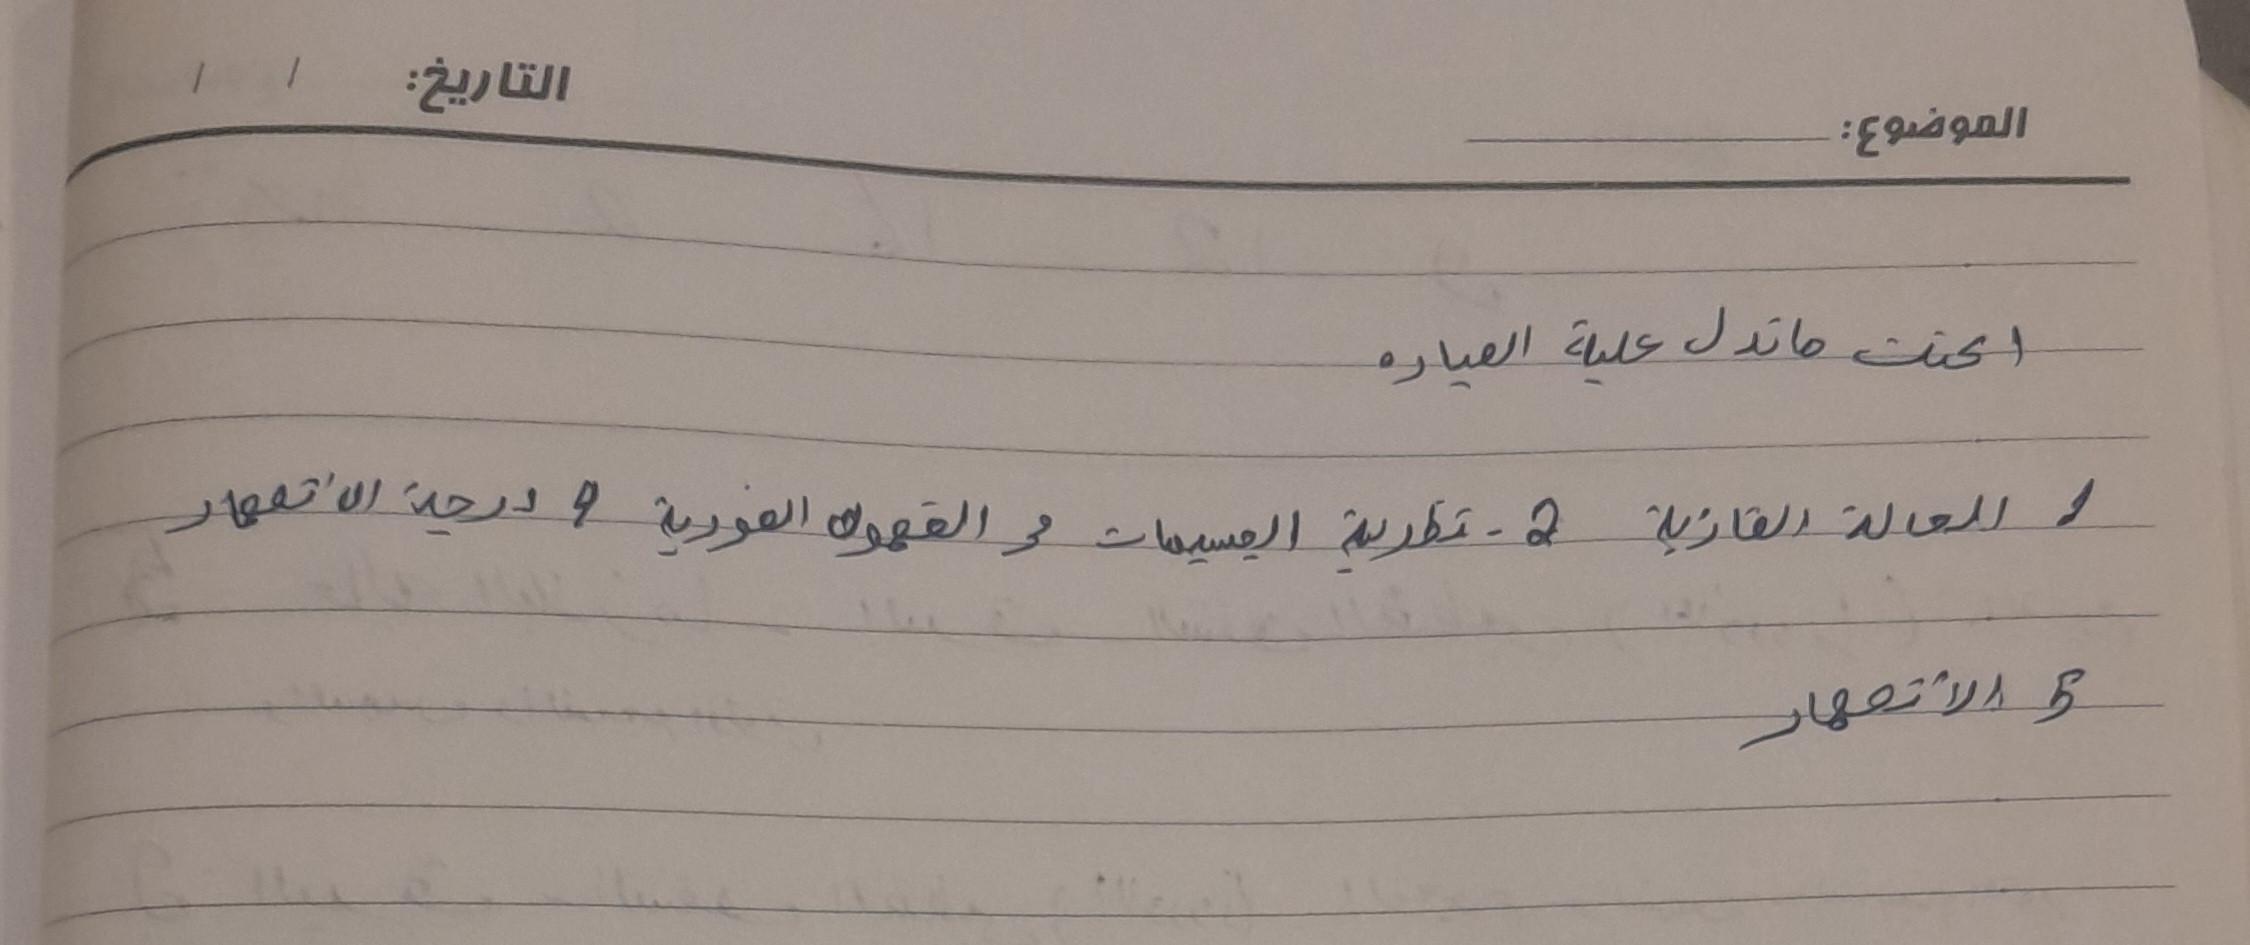 الموضوع: التاريخ: / /
اكتب ماتدل علية العباره
1 الحالة الغازية 2 - نظرية الجسيمات 3 القهوه الفورية 4 درجة الأنصهار
5 الأنصهار